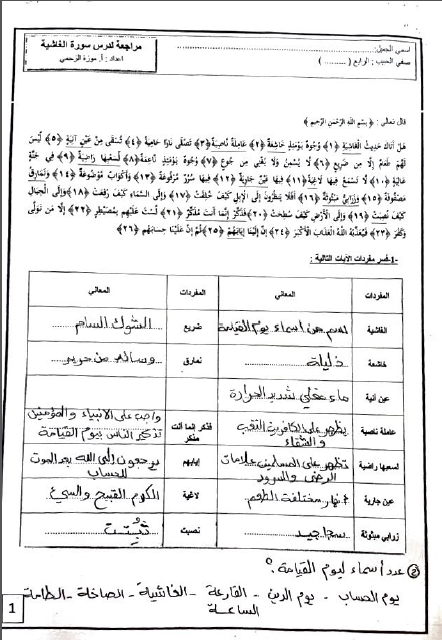 مراجعة لدرس سورة الغاشية
اعداد : أ. موزة الرحمي
اسمي الجميل:
صفي الحبيب : الرابع ( ........ )
قال تعالى : ﴿ بِسْمِ اللَّهِ الرَّحْمَنِ الرَّحِيمِ ﴾
هَلْ أَتَاكَ حَدِيثُ الْغَاشِيَةِ ﴿١﴾ وُجُوهٌ يَوْمَئِذٍ خَاشِعَةٌ ﴿٢﴾ عَامِلَةٌ نَاصِبَةٌ ﴿٣﴾ تَصْلَى نَارًا حَامِيَةً ﴿٤﴾ تُسْقَى مِنْ عَيْنٍ آنِيَةٍ ﴿٥﴾ لَيْسَ
لَهُمْ طَعَامٌ إِلَّا مِنْ ضَرِيعٍ ﴿٦﴾ لَا يُسْمِنُ وَلَا يُغْنِي مِنْ جُوعٍ ﴿٧﴾ وُجُوهٌ يَوْمَئِذٍ نَاعِمَةٌ ﴿٨﴾ لِسَعْيِهَا رَاضِيَةٌ ﴿٩﴾ فِي جَنَّةٍ
عَالِيَةٍ ﴿١٠﴾ لَا تَسْمَعُ فِيهَا لَاغِيَةً ﴿١١﴾ فِيهَا عَيْنٌ جَارِيَةٌ ﴿١٢﴾ فِيهَا سُرُرٌ مَرْفُوعَةٌ ﴿١٣﴾ وَأَكْوَابٌ مَوْضُوعَةٌ ﴿١٤﴾ وَنَمَارِقُ
مَصْفُوفَةٌ ﴿١٥﴾ وَزَرَابِيُّ مَبْثُوثَةٌ ﴿١٦﴾ أَفَلَا يَنْظُرُونَ إِلَى الْإِبِلِ كَيْفَ خُلِقَتْ ﴿١٧﴾ وَإِلَى السَّمَاءِ كَيْفَ رُفِعَتْ ﴿١٨﴾ وَإِلَى الْجِبَالِ
كَيْفَ نُصِبَتْ ﴿١٩﴾ وَإِلَى الْأَرْضِ كَيْفَ سُطِحَتْ ﴿٢٠﴾ فَذَكِّرْ إِنَّمَا أَنْتَ مُذَكِّرٌ ﴿٢١﴾ لَسْتَ عَلَيْهِمْ بِمُصَيْطِرٍ ﴿٢٢﴾ إِلَّا مَنْ تَوَلَّى
وَكَفَرَ ﴿٢٣﴾ فَيُعَذِّبُهُ اللَّهُ الْعَذَابَ الْأَكْبَرَ ﴿٢٤﴾ إِنَّ إِلَيْنَا إِيَابَهُمْ ﴿٢٥﴾ ثُمَّ إِنَّ عَلَيْنَا حِسَابَهُمْ ﴿٢٦﴾
1-فسر مفردات الآيات التالية :
المفردات المعاني المفردات المعاني
الغاشية اسم من اسماء يوم القيامة ضريع الشوك السام
خاشعة ذليلة نمارق وسائد من حرير
عين آنية ماء مغلي شديد الحرارة
عاملة ناصبة يظهر على الكافرين التعب والشقاء فذكر إنما أنت مذكر واجب على الانبياء والمؤمنين تذكير الناس بيوم القيامة
لسعيها راضية تظهر على المسلمين علامات الرضى والسرور إيابهم يرجعون إلى الله بعد الموت للحساب
عين جارية أنهار مختلفة الطعم لاغية الكلام القبيح والسيئ
زرابي مبثوثة سجاجيد نصبت ثُبِّتت
② عدد أسماء ليوم القيامة ؟
يوم الحساب - يوم الدين - القارعة - الغاشية - الصاخة - الطامة
الساعة
1